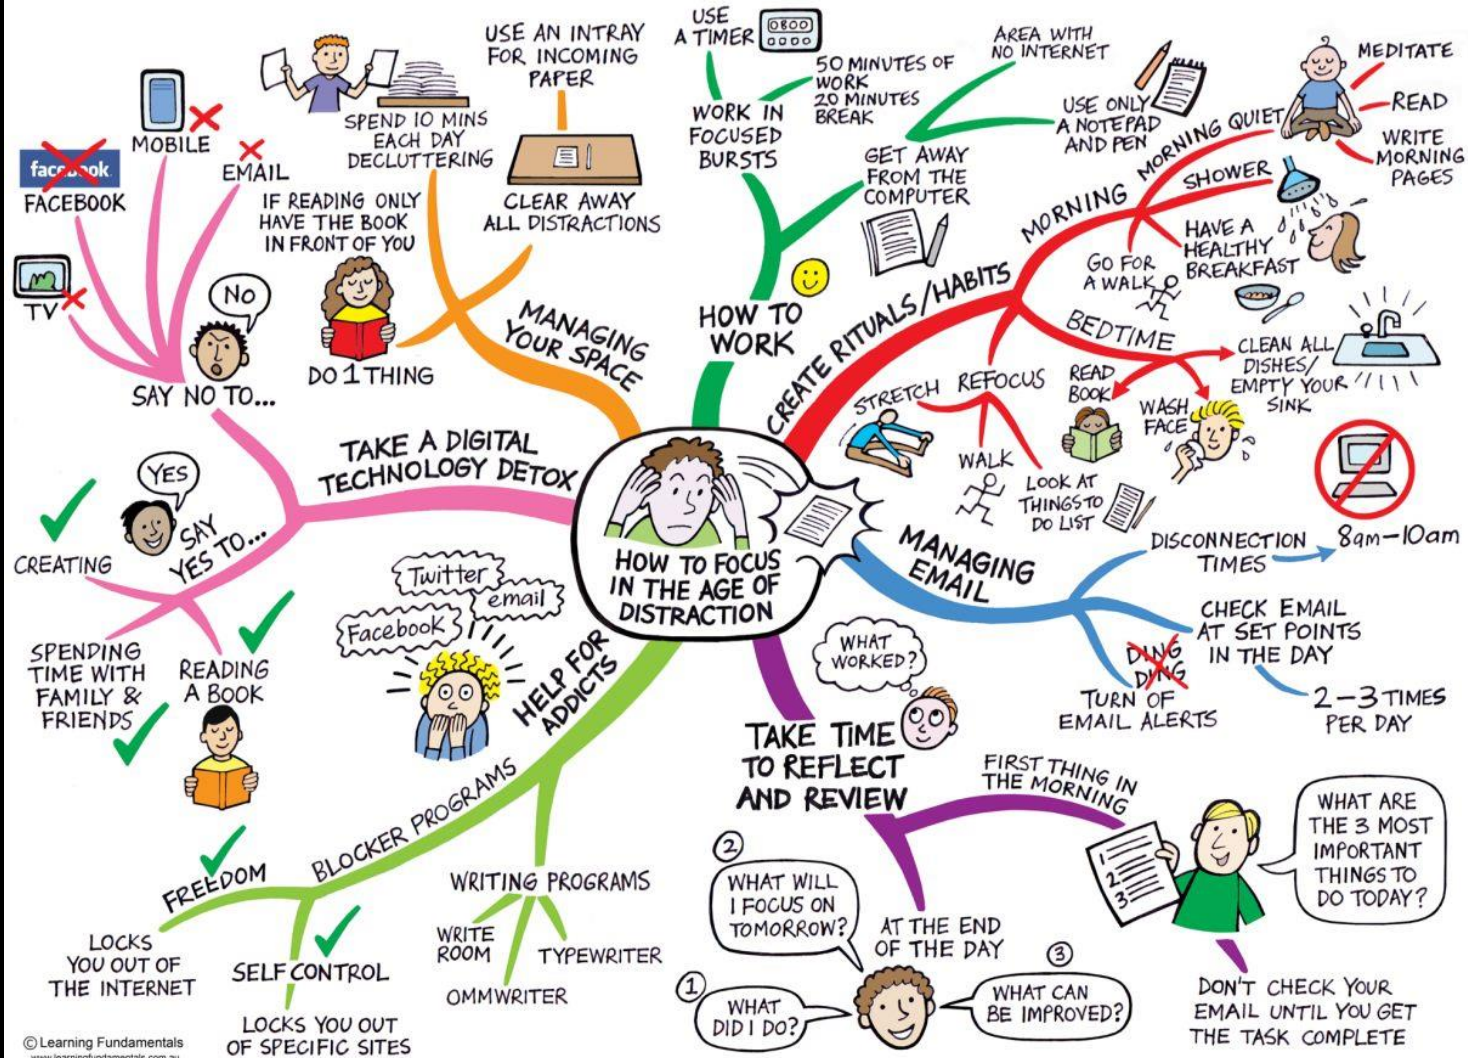 HOW TO FOCUS
IN THE AGE OF
DISTRACTION
MANAGING
YOUR SPACE
SPEND 10 MINS
EACH DAY
DECLUTTERING
USE AN INTRAY
FOR INCOMING
PAPER
CLEAR AWAY
ALL DISTRACTIONS
IF READING ONLY
HAVE THE BOOK
IN FRONT OF YOU
DO 1 THING
HOW TO
WORK
WORK IN
FOCUSED
BURSTS
USE
A TIMER
0800
50 MINUTES OF
WORK
20 MINUTES
BREAK
GET AWAY
FROM THE
COMPUTER
AREA WITH
NO INTERNET
USE ONLY
A NOTEPAD
AND PEN
CREATE RITUALS/HABITS
MORNING
MORNING QUIET
MEDITATE
READ
WRITE
MORNING
PAGES
SHOWER
HAVE A
HEALTHY
BREAKFAST
GO FOR
A WALK
BEDTIME
CLEAN ALL
DISHES/
EMPTY YOUR
SINK
WASH
FACE
READ
BOOK
REFOCUS
STRETCH
WALK
LOOK AT
THINGS TO
DO LIST
MANAGING
EMAIL
DISCONNECTION
TIMES
8am-10am
CHECK EMAIL
AT SET POINTS
IN THE DAY
2-3 TIMES
PER DAY
DING
DING
TURN OF
EMAIL ALERTS
TAKE TIME
TO REFLECT
AND REVIEW
WHAT
WORKED?
FIRST THING IN
THE MORNING
1
2
3
WHAT ARE
THE 3 MOST
IMPORTANT
THINGS TO
DO TODAY?
DON'T CHECK YOUR
EMAIL UNTIL YOU GET
THE TASK COMPLETE
AT THE END
OF THE DAY
1
WHAT
DID I DO?
2
WHAT WILL
I FOCUS ON
TOMORROW?
3
WHAT CAN
BE IMPROVED?
HELP FOR
ADDICTS
Twitter
email
Facebook
BLOCKER PROGRAMS
FREEDOM
LOCKS
YOU OUT OF
THE INTERNET
SELF CONTROL
LOCKS YOU OUT
OF SPECIFIC SITES
WRITING PROGRAMS
WRITE
ROOM
OMMWRITER
TYPEWRITER
TAKE A DIGITAL
TECHNOLOGY DETOX
SAY NO TO...
NO
TV
facebook
FACEBOOK
MOBILE
EMAIL
SAY
YES TO...
YES
CREATING
SPENDING
TIME WITH
FAMILY &
FRIENDS
READING
A BOOK
© Learning Fundamentals
www.learningfundamentals.com.au